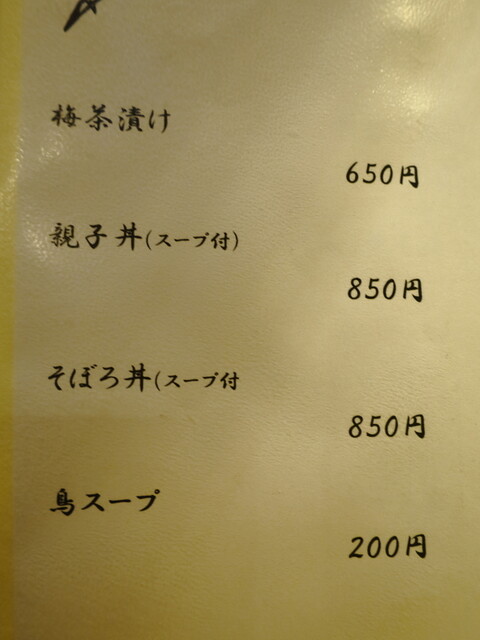 梅茶漬け
650円
親子丼(スープ付)
850円
そぼろ丼(スープ付
850円
鳥スープ
200円